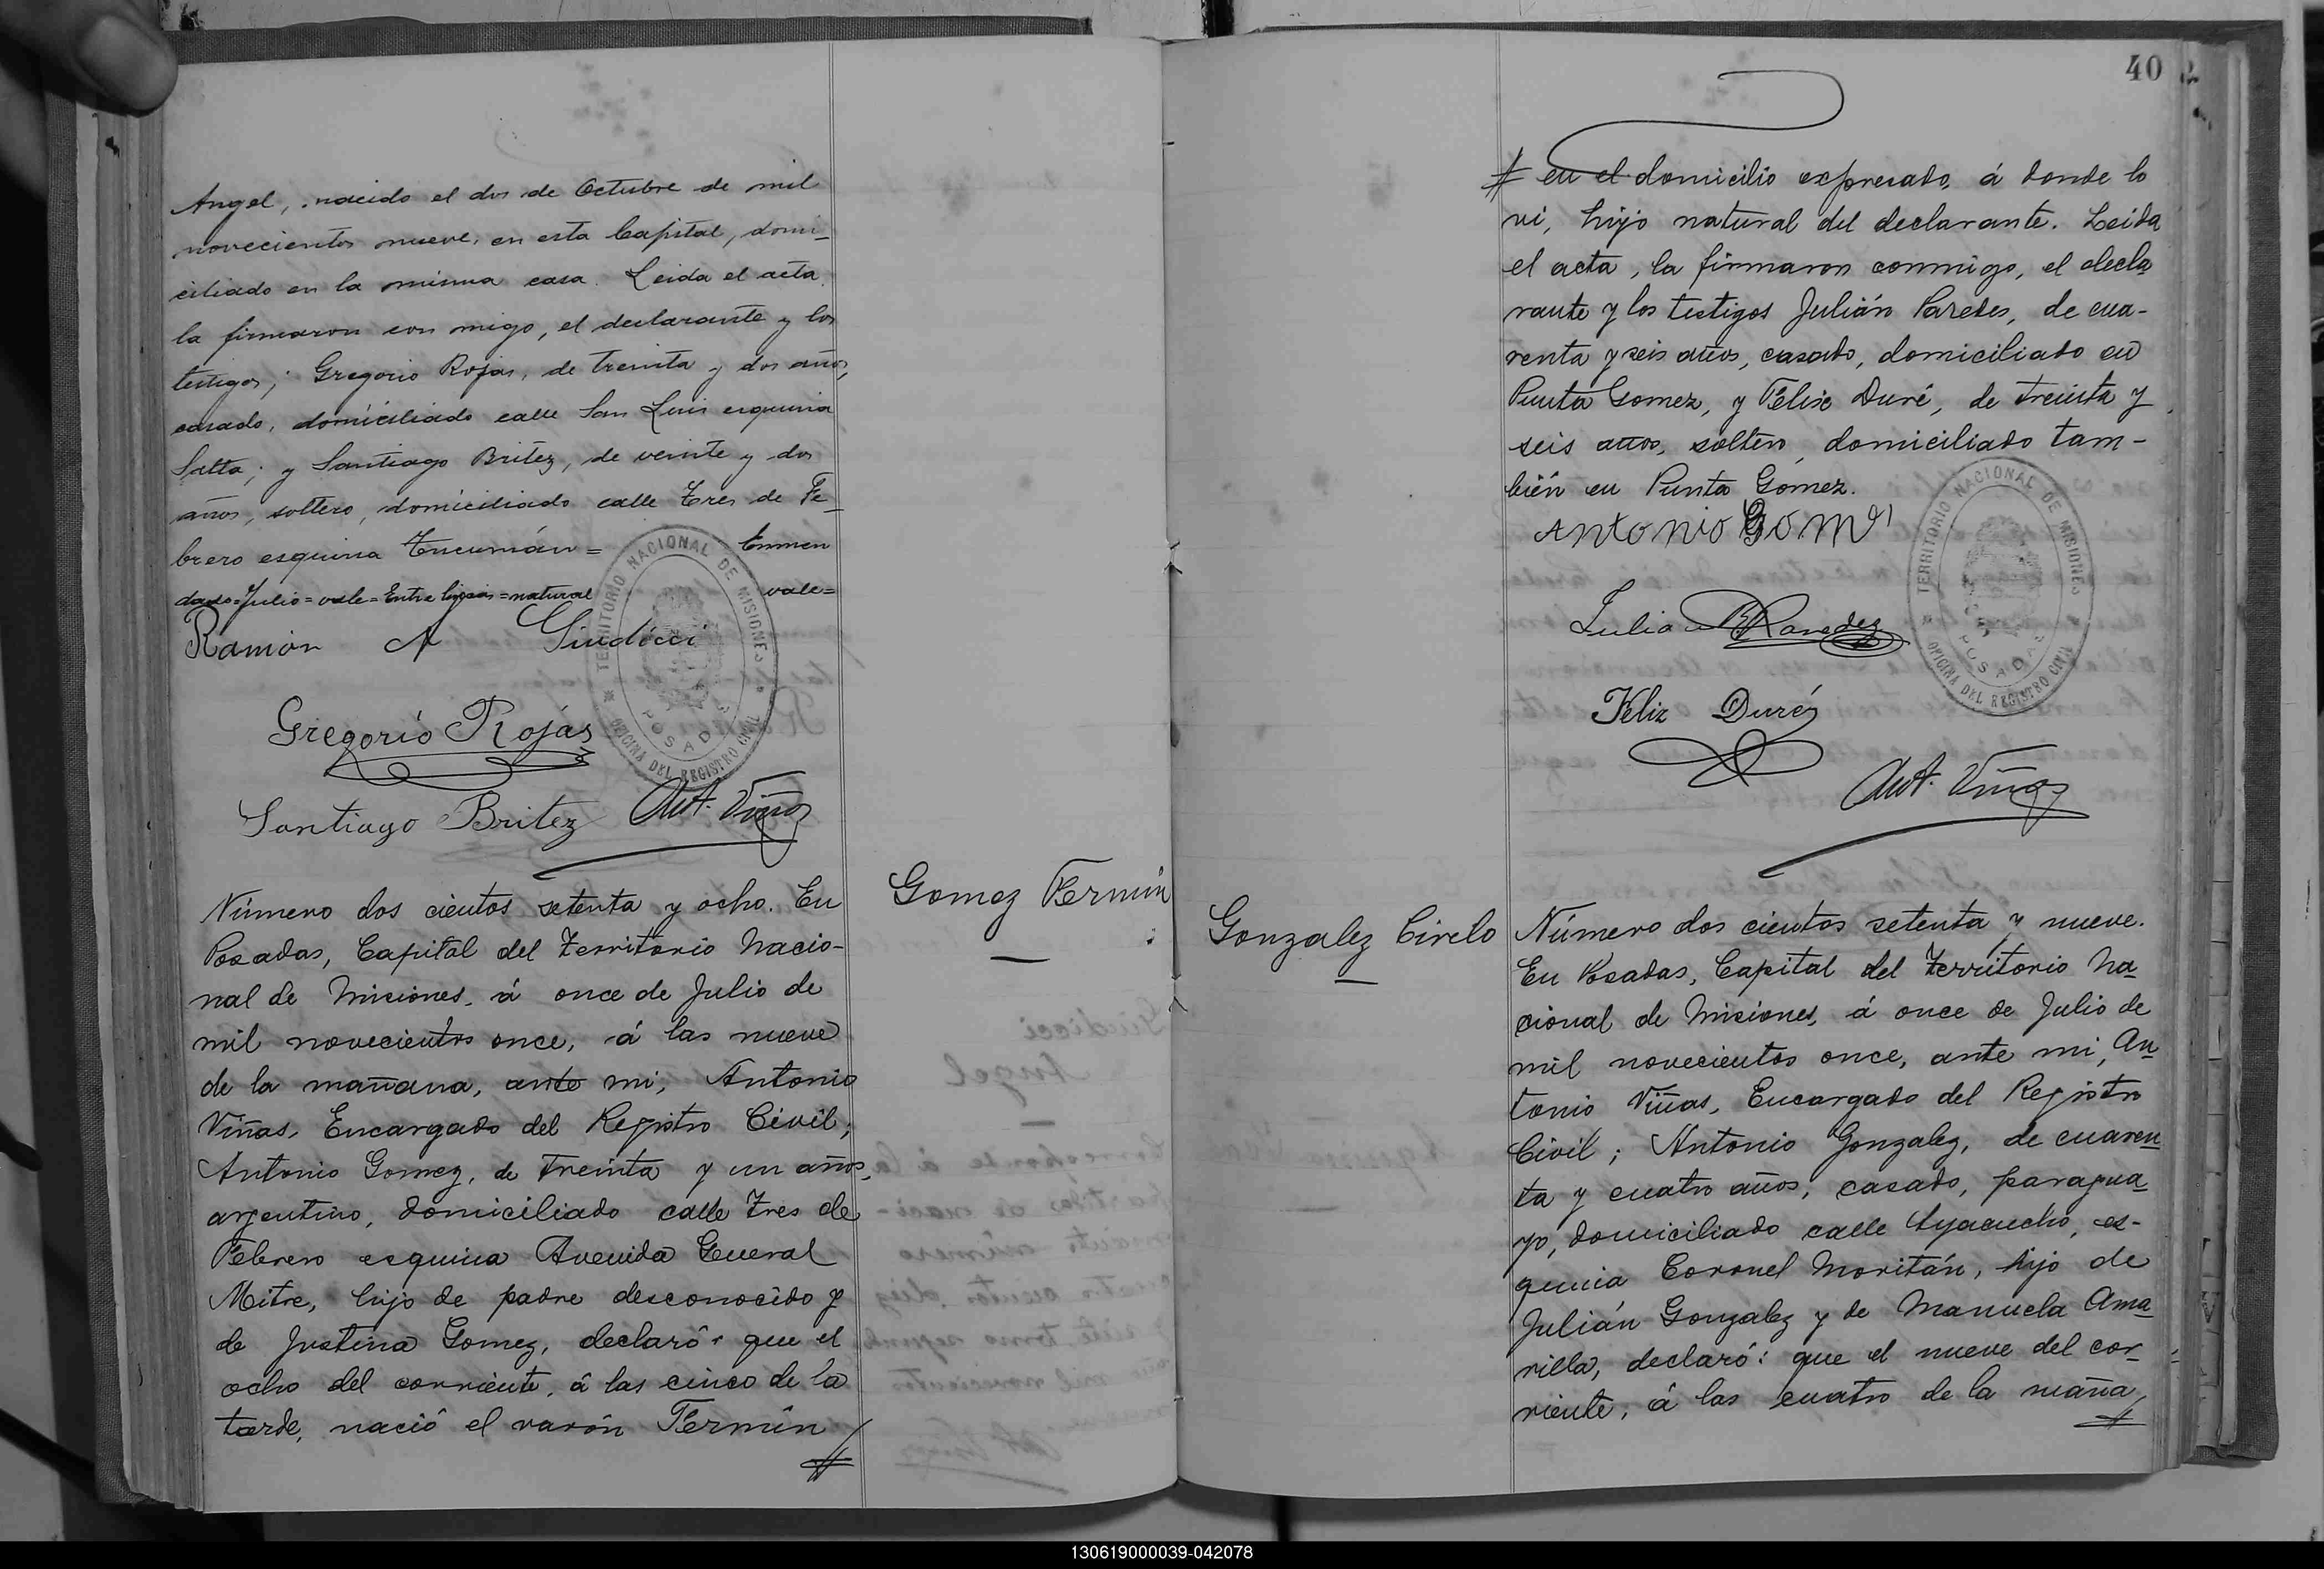 Angel, nacido el dos de Octubre de mil
novecientos nueve, en esta Capital, domi-
ciliado en la misma casa. Leida el acta
la firmaron con migo, el declarante y los
testigos; Gregorio Rojas, de treinta y dos años,
casado, domiciliado calle San Luis esquina
Salta; y Santiago Britez, de veinte y dos
años, soltero, domiciliado calle Tres de Fe-
brero esquina Tucumán= Enmen
dado=Julio=vale=Entre lineas=natural vale=
Ramón A Giudicci
TERRITORIO NACIONAL DE MISIONES
POSADAS
OFICINA DEL REGISTRO CIVIL
Gregorio Rojas
Santiago Britez Ant. Viñas
Gomez Fermin
Número dos cientos setenta y ocho. En
Posadas, Capital del Territorio Nacio-
nal de Misiones, á once de Julio de
mil novecientos once, á las nueve
de la mañana, ante mi, Antonio
Viñas, Encargado del Registro Civil;
Antonio Gomez, de treinta y un años,
argentino, domiciliado calle Tres de
Febrero esquina Avenida General
Mitre, hijo de padre desconocido y
de Justina Gomez, declaró: que el
ocho del corriente, á las cinco de la
tarde, nació el varón Fermin
40
en el domicilio expresado, á donde lo
vi, hijo natural del declarante. Leida
el acta, la firmaron conmigo, el decla
rante y los testigos Julián Paredes, de cua-
renta y seis años, casado, domiciliado en
Punta Gomez, y Félix Duré, de treinta y
seis años, soltero, domiciliado tam-
bién en Punta Gomez.
Antonio Gom
TERRITORIO NACIONAL DE MISIONES
POSADAS
OFICINA DEL REGISTRO CIVIL
Julia Paredez
Feliz Duré
Ant. Viñas
Gonzalez Cirelo
Número dos cientos setenta y nueve.
En Posadas, Capital del Territorio Na
cional de Misiones, á once de Julio de
mil novecientos once, ante mi, An
tonio Viñas, Encargado del Registro
Civil; Antonio Gonzalez, de cuaren
ta y cuatro años, casado, paragua
yo, domiciliado calle Ayacucho, es-
quina Coronel Moritán, hijo de
Julián Gonzalez y de Manuela Ama
rilla, declaró: que el nueve del cor-
riente, á las cuatro de la maña
130619000039-042078